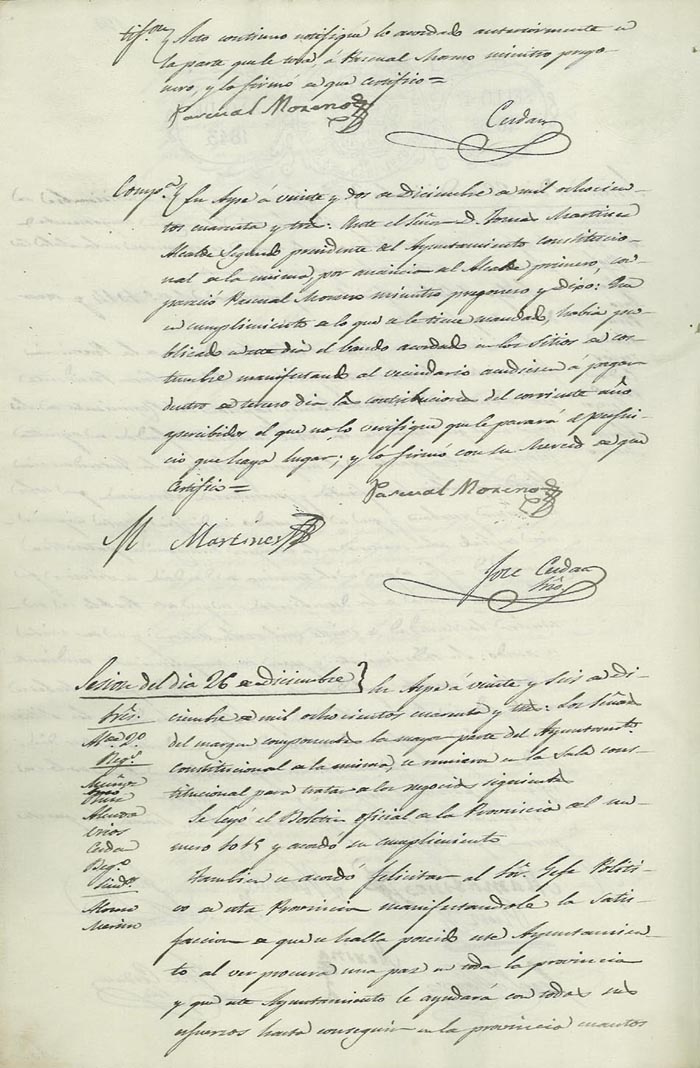 Acto continuo notifiqué lo acordado anteriormente a
la parte que le toca, á Pascual Moreno ministro prego-
nero, y lo firmó de que certifico =
Pascual Moreno
Cerdan
Comp.ª En Aspe á veinte y dos de Diciembre de mil ochocien-
tos cuarenta y tres: Ante el Señor D. Tomas Martinez
Alcalde Segundo presidente del Ayuntamiento constitucio-
nal de la misma, por ausencia del Alcalde primero, com-
pareció Pascual Moreno ministro pregonero y dijo: Que
en cumplimiento de lo que se le tiene mandado, habia pu-
blicado en este dia el bando acordado en los sitios de cos-
tumbre manifestando al vecindario acudiesen á pagar
dentro de tercero dia las contribuciones del corriente año
apercibidos el que no lo verifique que le parará el perjui-
cio que haya lugar; y lo firmó con su Merced de que
Certifico =
Pascual Moreno
M Martinez
Jose Cerdan
Srio
Sesion del dia 26 de Diciembre } En Aspe á veinte y seis de Di-
Sres.
Alce. 2º
Reg.s
Muñoz
Cerdan
Sind.s
Moreno
ciembre de mil ochocientos cuarenta y tres: los Señores
del margen componentes la mayor parte del Ayuntam.to
constitucional de la misma, se reunieron en la Sala cons-
titucional para tratar de los negocios siguientes
Se leyó el Boletin oficial de la Provincia del nu-
mero 1015 y acordó su cumplimiento
Tambien se acordó felicitar al Sor. Gefe Politi-
co de esta Provincia manifestandole la satis-
faccion de que se halla poseido este Ayuntamien-
to al ver procura una paz en toda la provincia
y que este Ayuntamiento le ayudará con todos sus
esfuerzos hasta conseguir en la provincia cuantos